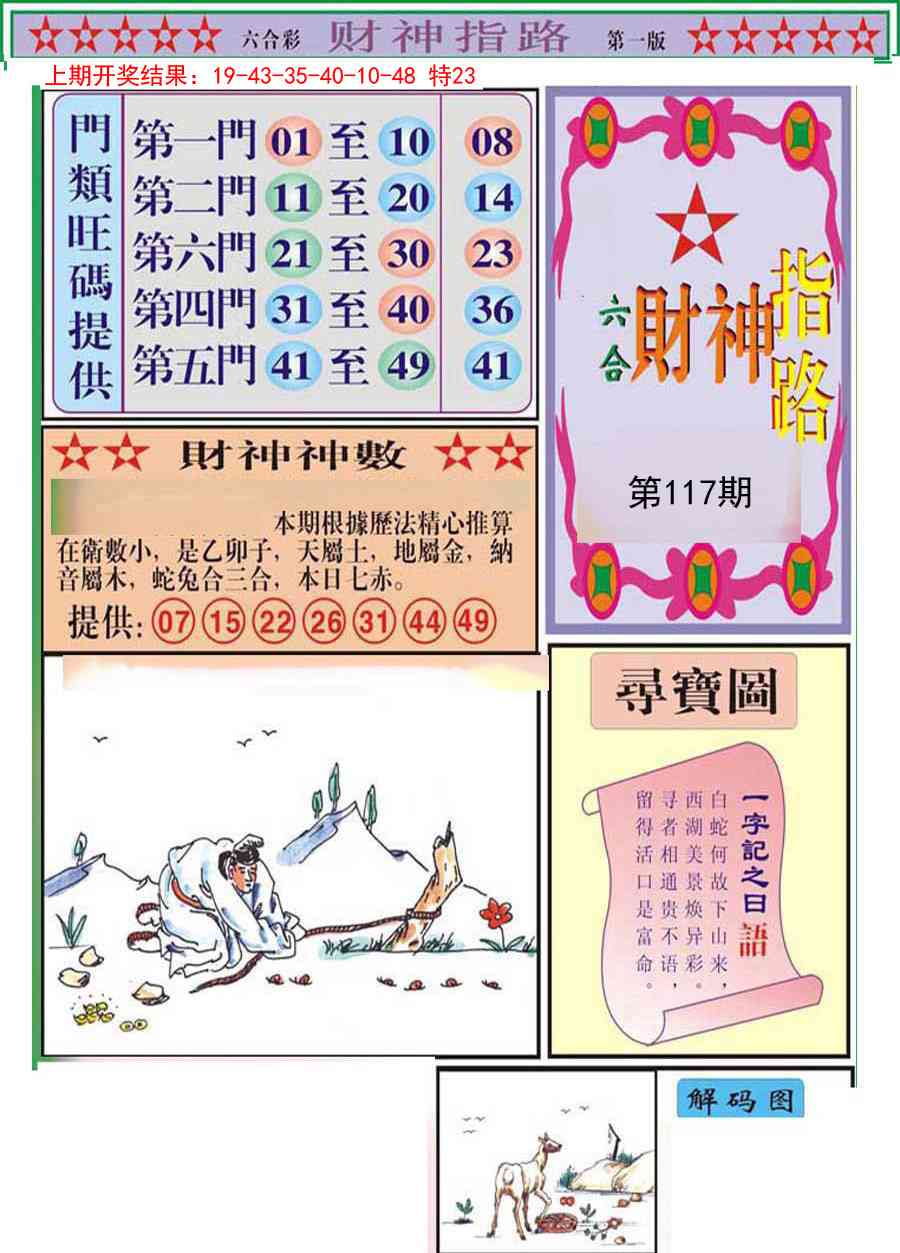 六合彩 财神指路 第一版
上期开奖结果：19-43-35-40-10-48 特23
門類旺碼提供
第一門 01 至 10 08
第二門 11 至 20 14
第六門 21 至 30 23
第四門 31 至 40 36
第五門 41 至 49 41
六合
財神
指路
第117期
財神神數
本期根據歷法精心推算
在衛數小，是乙卯子，天屬土，地屬金，納
音屬木，蛇兔合三合，本日七赤。
提供: 07 15 22 26 31 44 49
尋寶圖
一字記之曰 語
白蛇何故下山来，
西湖美景焕异彩。
寻者相通贵不语，
留得活口是富命。
解码图